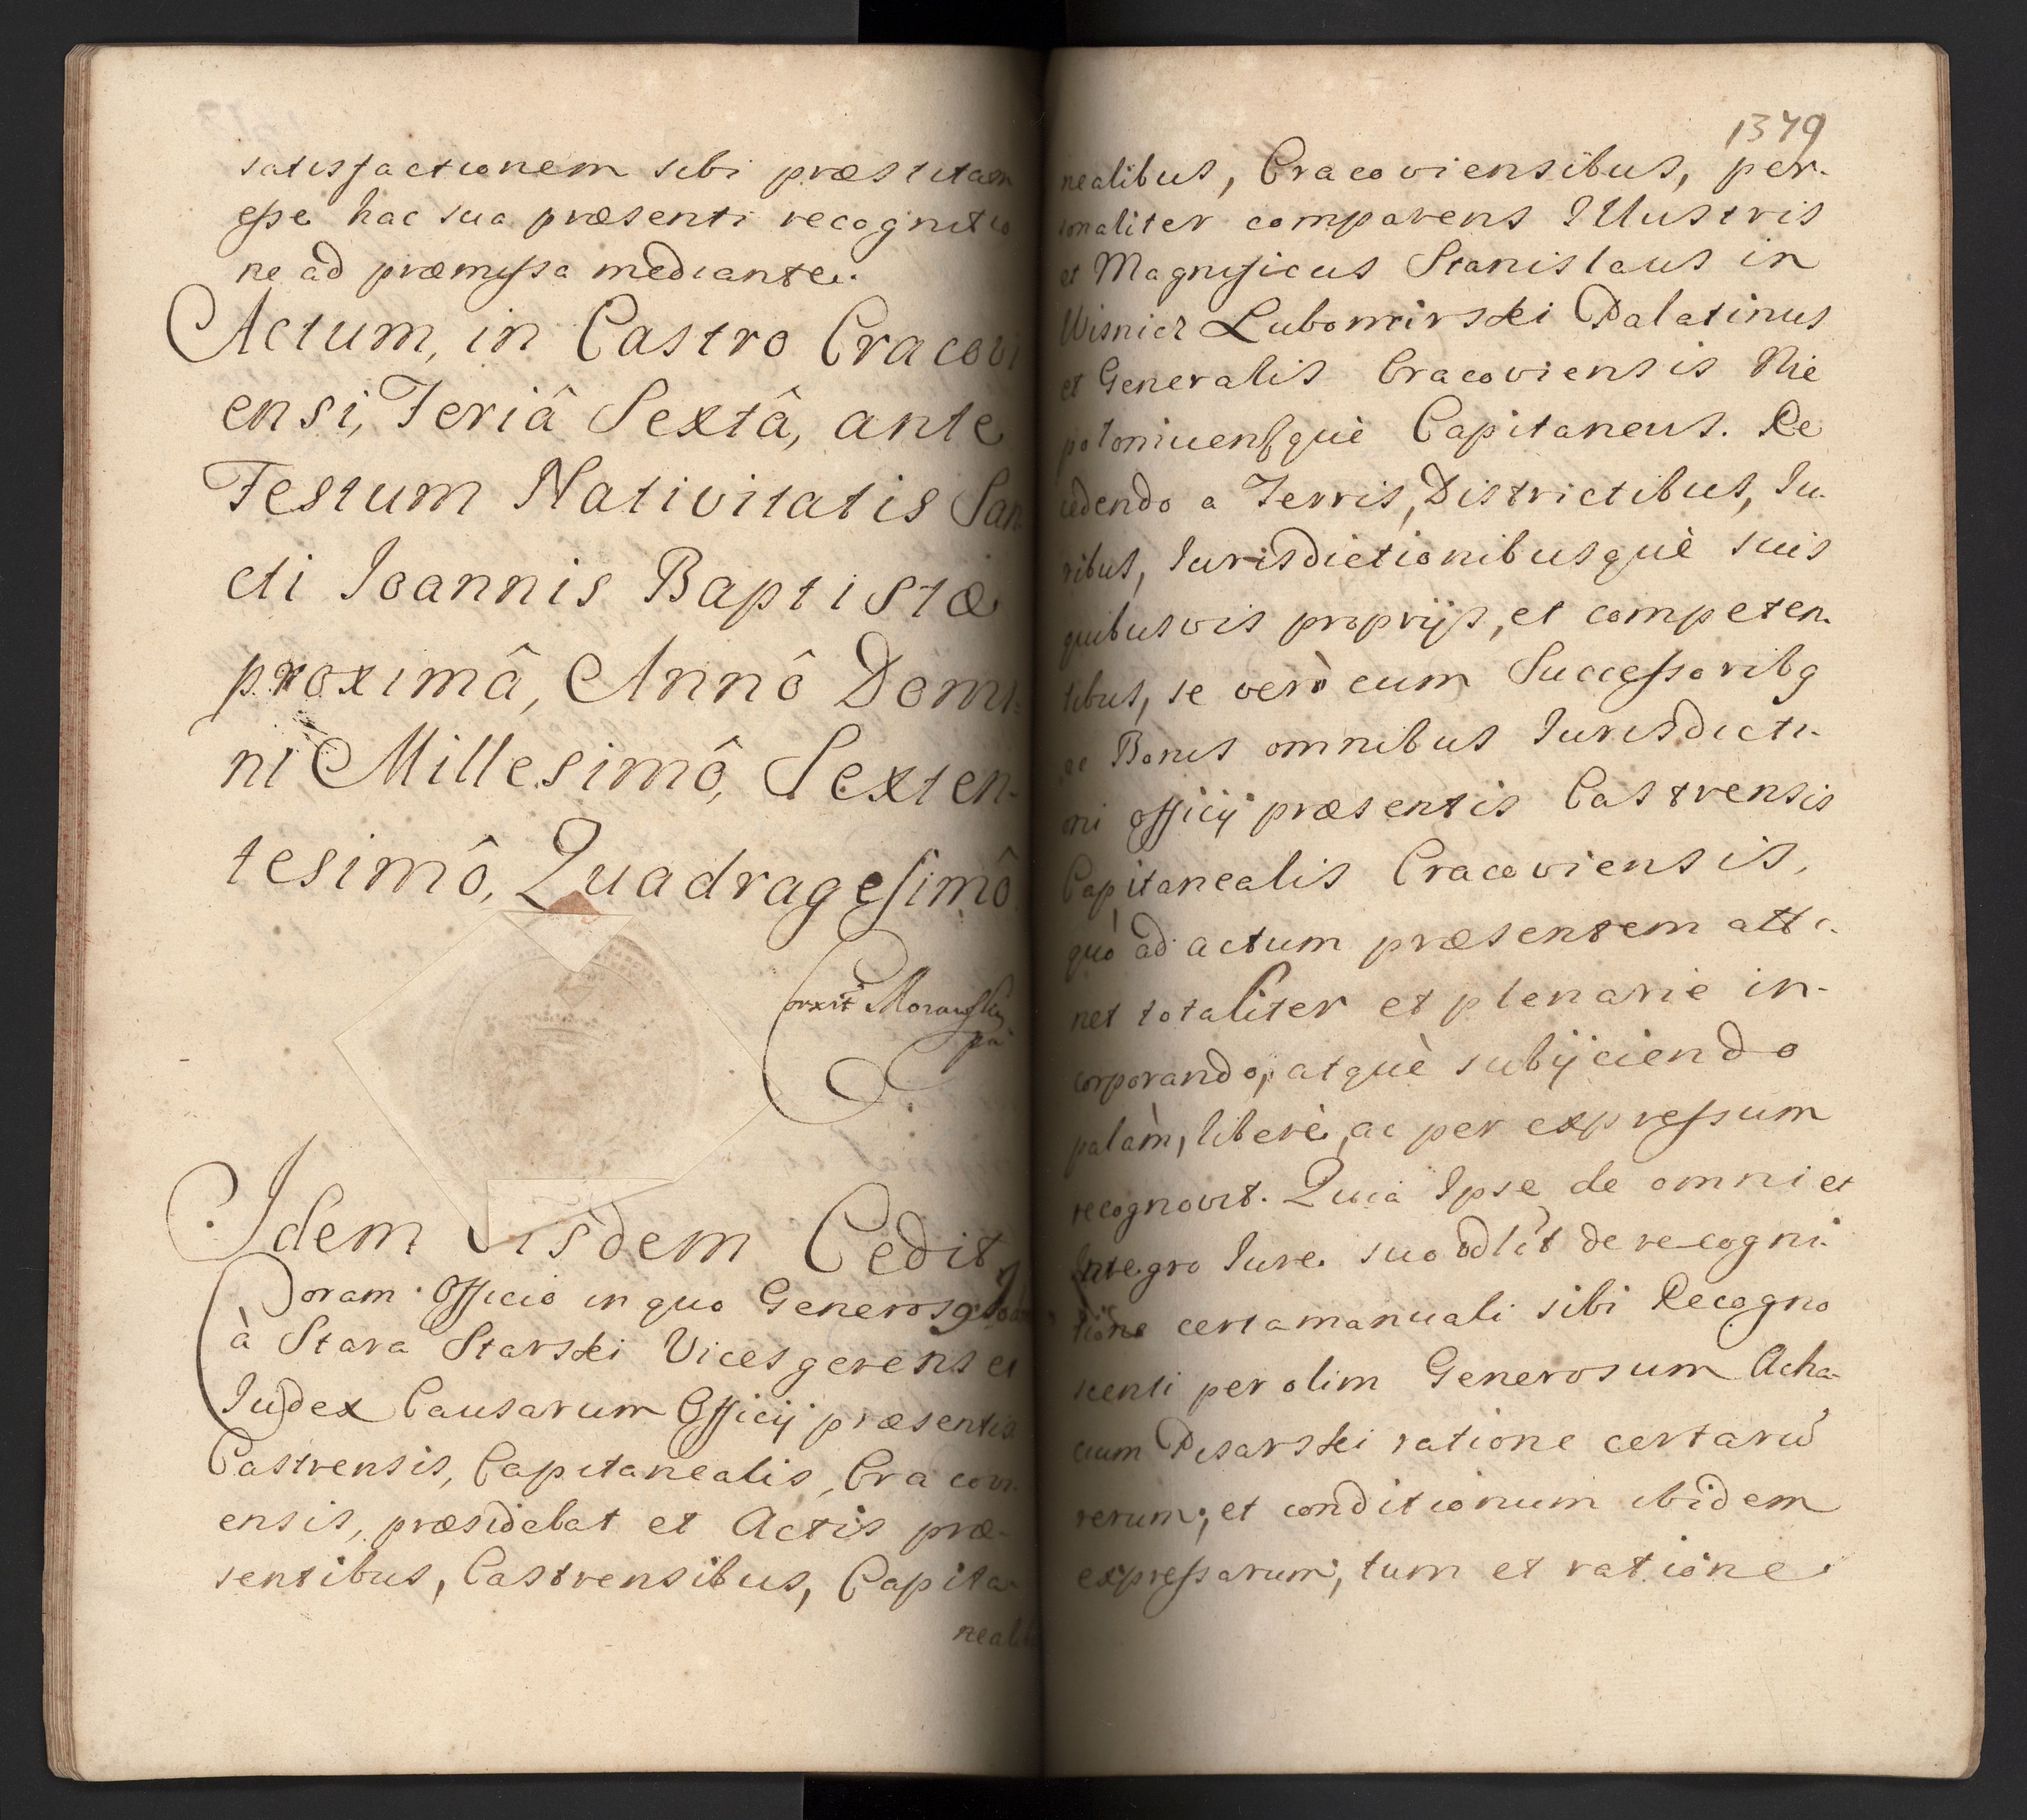 satisfactionem sibi præstitam
esse hac sua præsenti recognitio
ne ad præmissa mediante.
Actum, in Castro Cracovi
ensi, Feriâ Sextâ, ante
Festum Nativitatis San
cti Ioannis Baptistæ
proximâ, Annô Domi=
ni Millesimô, Sexten-
tesimô, Quadragesimô
Corexit Morawsky
pa
Idem Iisdem Cedit
Coram Officio in quo Generos9
à Stara Starski Vicesgerens et
Iudex Causarum Officij præsentis
Castrensis, Capitanealis, Cracovi
ensis, præsidebat et Actis præ-
sentibus, Castrensibus, Capita-
nealib
1379
nealibus, Cracoviensibus, per-
sonaliter comparens Illustris
et Magnificus Stanislaus in
Wisnicz Lubomirski Palatinus
et Generalis Cracoviensis Nie
polomicensqué Capitaneus. Re
cedendo a Terris, Districtibus, Iu-
ribus, Iurisdictionibusquè suis
quibusvis proprijs, et competen-
tibus, se verò cum Successorib9
ac Bonis omnibus Iurisdicti-
oni officij præsentis Castrensis
Capitanealis Cracoviensis,
quò ad actum præsentem atti-
net totaliter et plenarie in-
corporando, atquè subijciendo
palàm, liberè, ac per expressum
recognovit. Quia Ipse de omni et
Integro Iure suo odlēt de recogni-
tione certa manuali sibi Recogno
scenti per olim Generosum Acha-
cium Pisarski ratione certarū
rerum, et conditionum ibidem
expressarum, tum et ratione